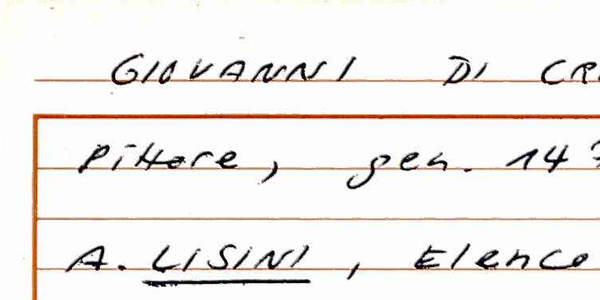 GIOVANNI DI CR
Pittore, gen. 14
A. LISINI, Elenco